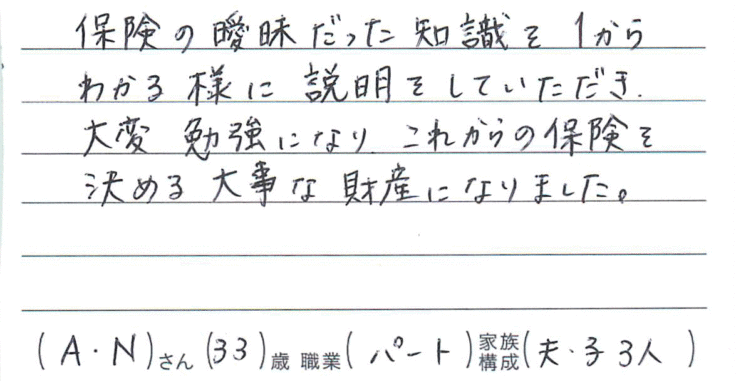 保険の曖昧だった知識を1から
わかる様に説明をしていただき、
大変勉強になり、これからの保険を
決める大事な財産になりました。
(A・N)さん(33)歳 職業(パート)家族構成(夫・子3人)